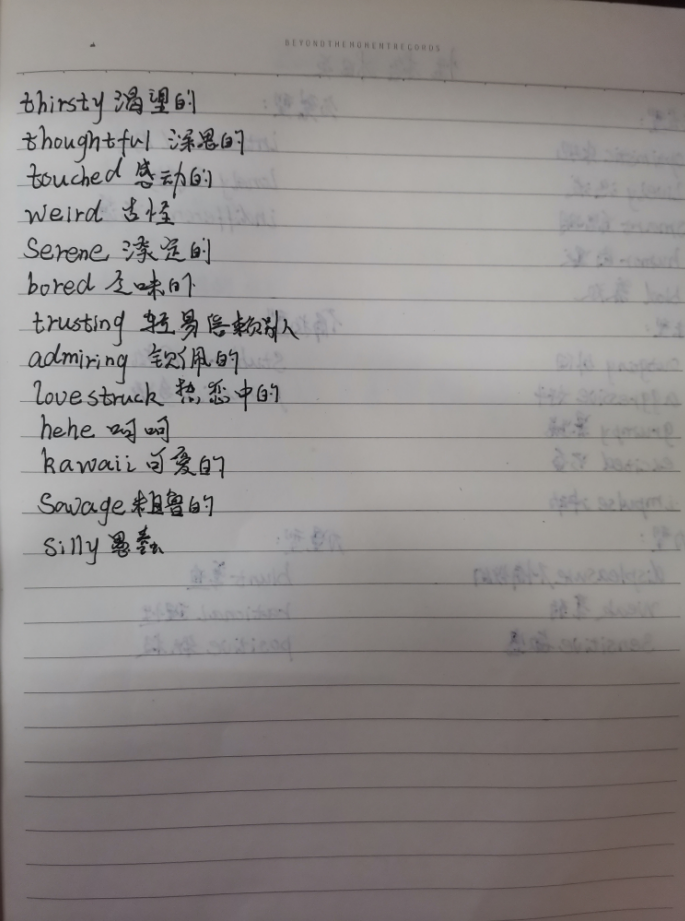 BEYONDTHEMOMENTRECORDS
thirsty 渴望的
thoughtful 深思的
touched 感动的
weird 古怪
Serene 淡定的
bored 乏味的
trusting 轻易信赖别人
admiring 钦佩的
lovestruck 热恋中的
hehe 呵呵
kawaii 可爱的
Savage 粗鲁的
silly 愚蠢